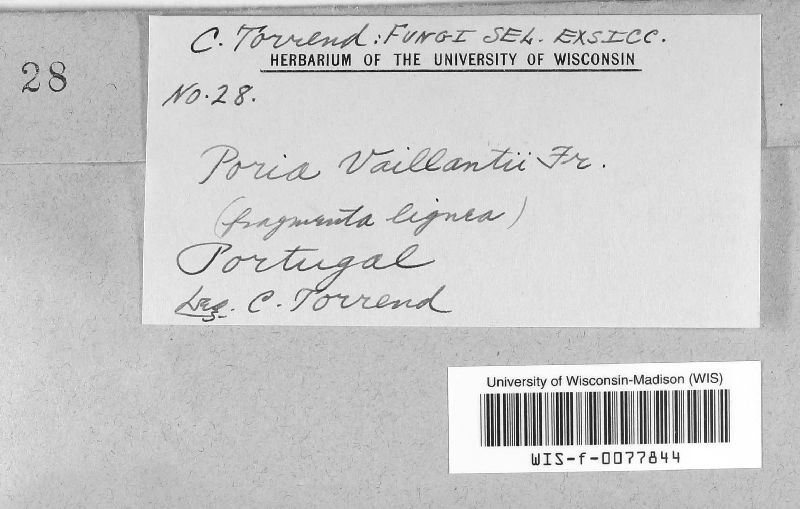 C. Torrend: FUNGI SEL. EXSICC.
HERBARIUM OF THE UNIVERSITY OF WISCONSIN
28
No. 28.
Poria Vaillantii Fr.
(fragmenta lignea)
Portugal
Leg. C. Torrend
University of Wisconsin-Madison (WIS)
WIS-f-0077844